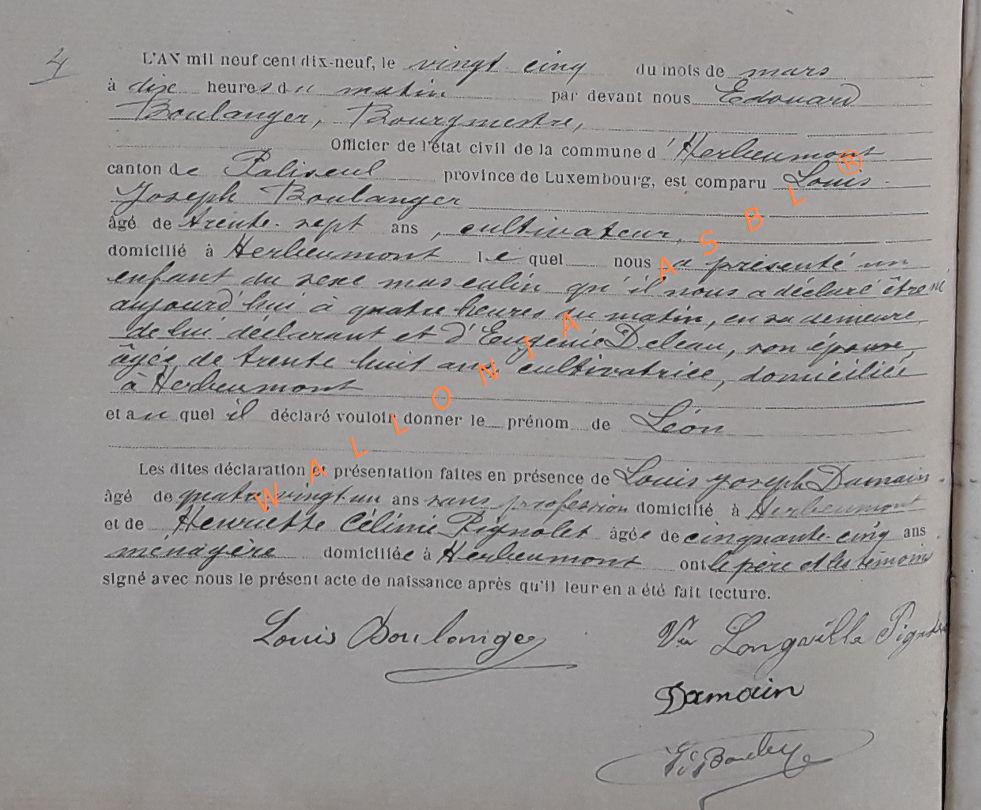 4
L'AN mil neuf cent dix-neuf, le vingt cinq du mois de mars
à dix heures du matin par devant nous Edouard
Boulanger, Bourgmestre,
Officier de l'état civil de la commune d'Herbeumont
canton de Paliseul province de Luxembourg, est comparu Louis
Joseph Boulanger
âgé de trente-sept ans, cultivateur,
domicilié à Herbeumont lequel nous a présenté un
enfant du sexe masculin qu'il nous a déclaré être né
aujourd'hui à quatre heures du matin, en sa demeure
de lui déclarant et d'Eugénie Deleau, son épouse,
âgée de trente huit ans cultivatrice, domiciliée
à Herbeumont
et auquel il déclaré vouloir donner le prénom de Léon
Les dites déclaration et présentation faites en présence de Louis Joseph Damain
âgé de quatre vingt un ans sans profession domicilié à Herbeumont
et de Henriette Célinie Pignolet âgée de cinquante-cinq ans
ménagère domiciliée à Herbeumont ont le père et les témoins
signé avec nous le présent acte de naissance après qu'il leur en a été fait lecture.
Louis Boulanger
Ve Longville Pignolet
Damain
WALLONIA ASBL ®